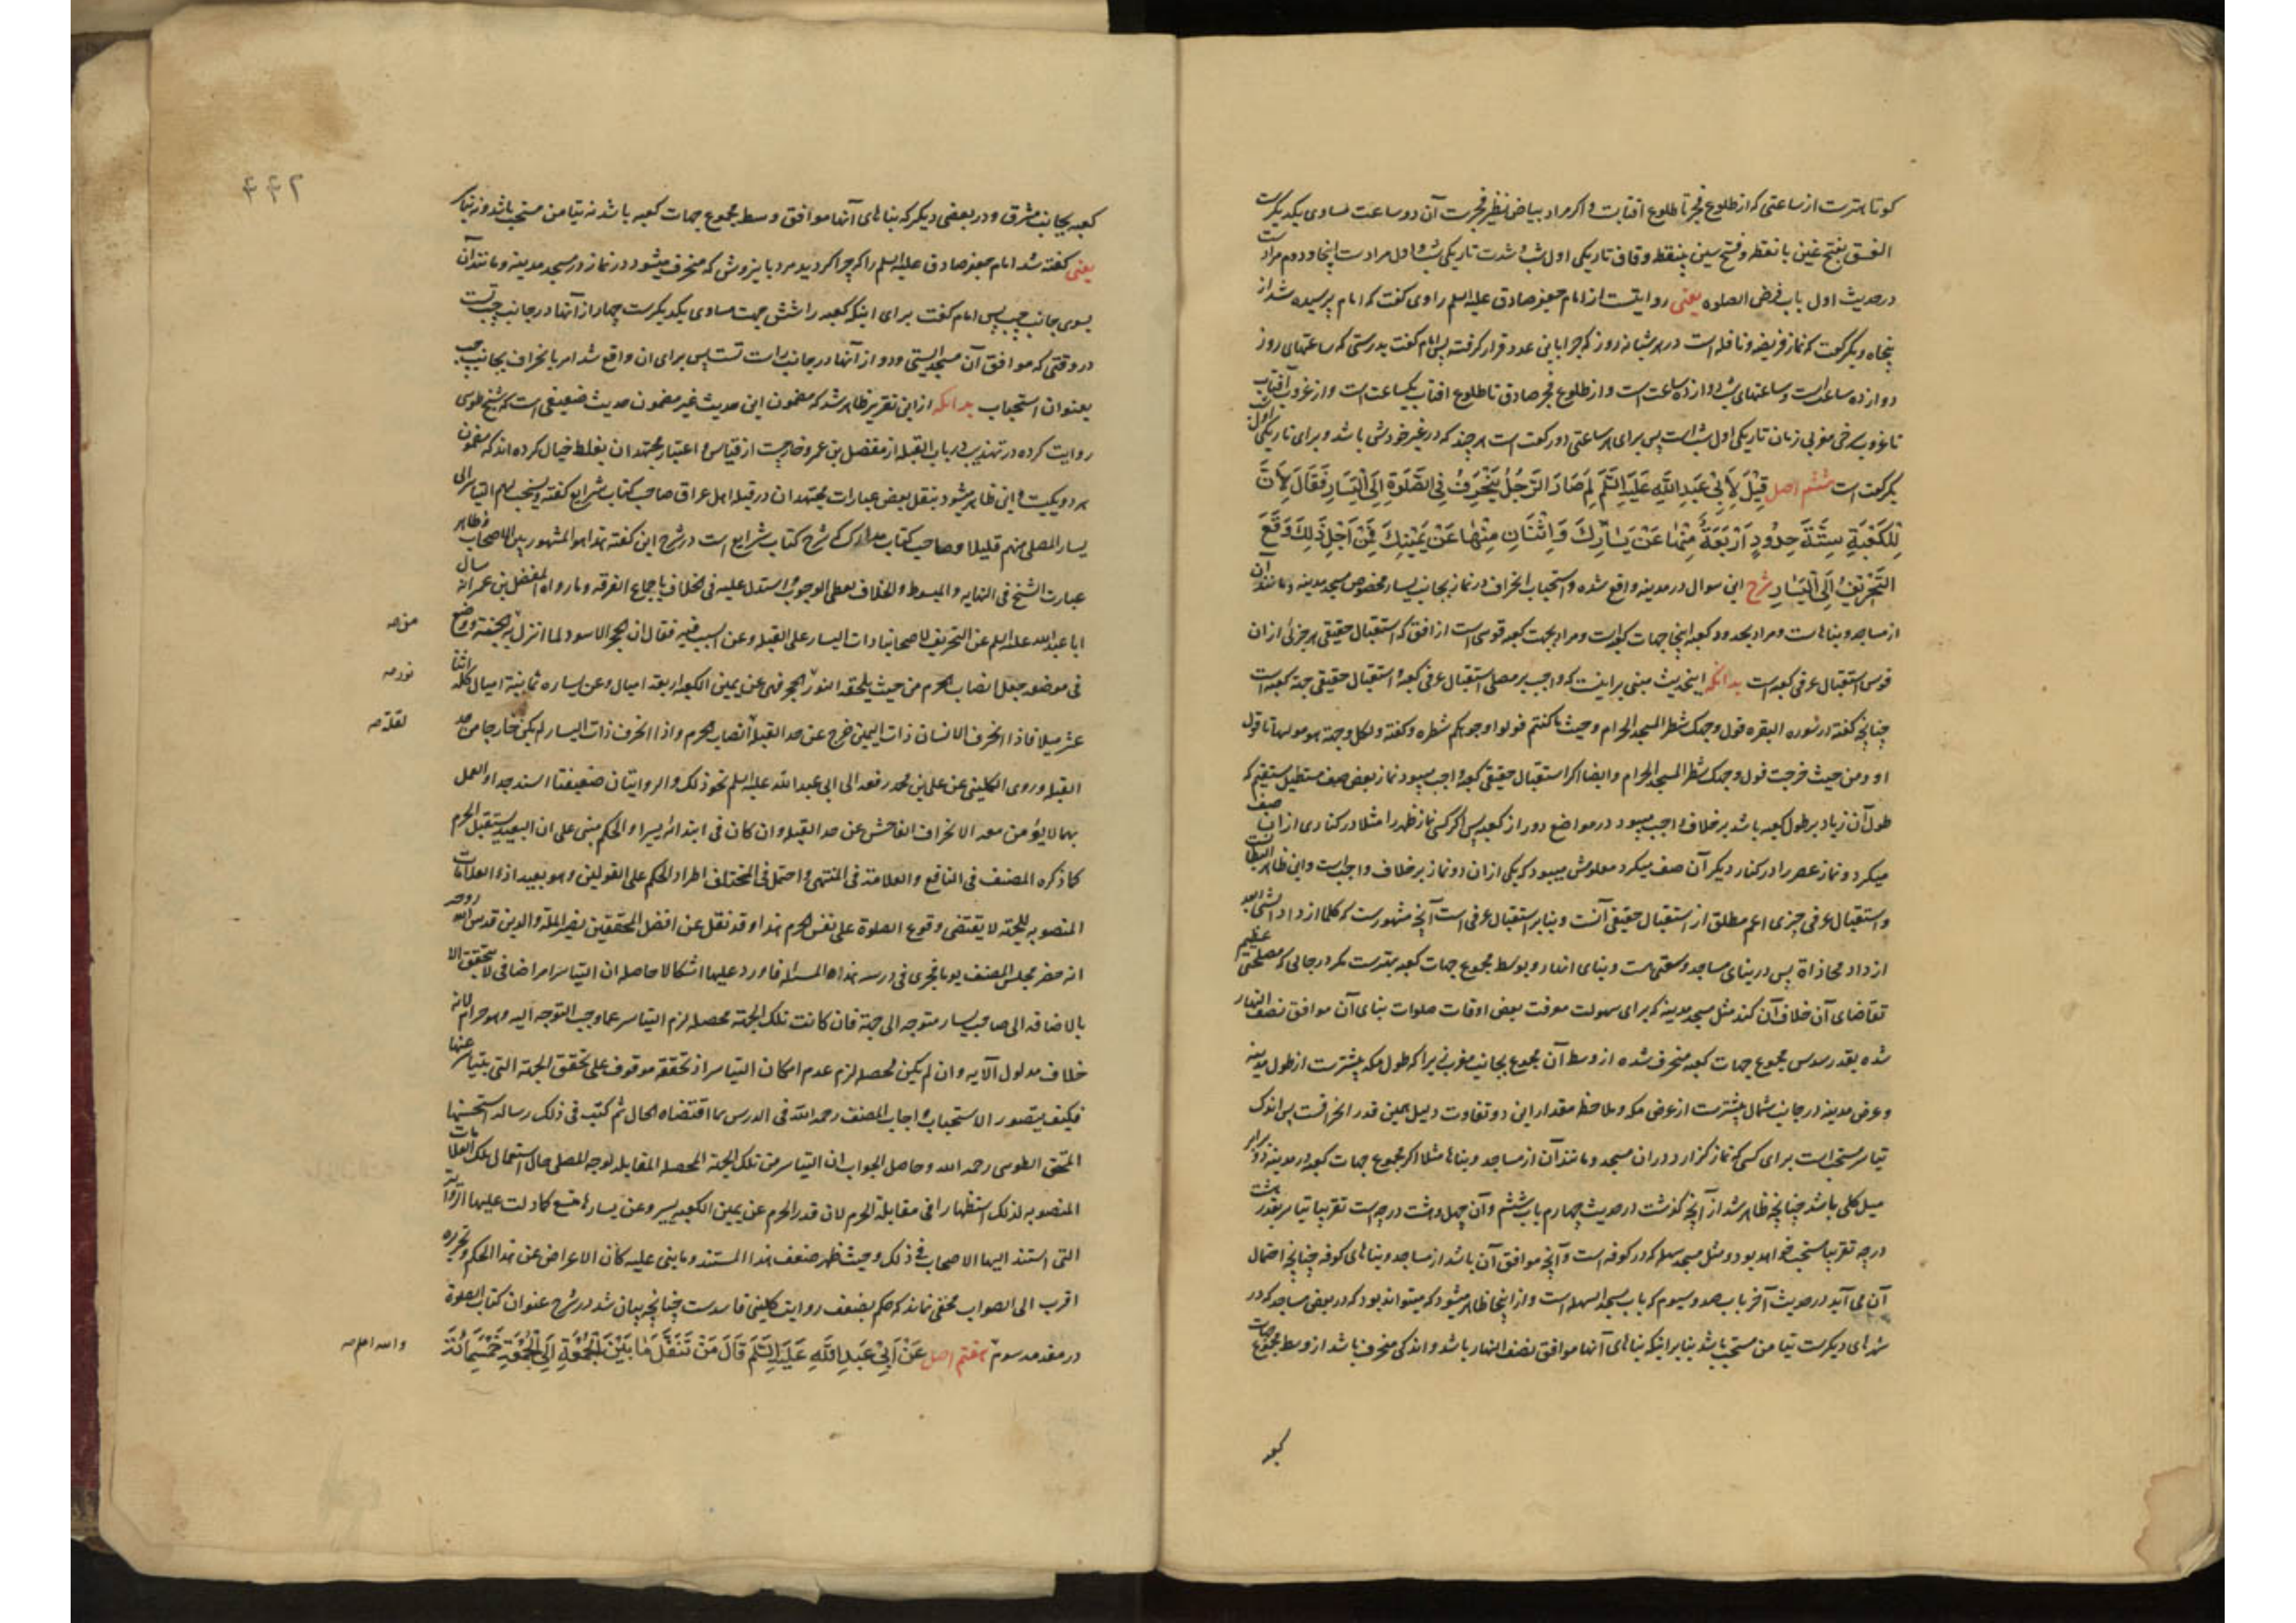 کوتاهترست از ساعتی که از طلوع فجر تا طلوع آفتابست و اگر مراد بیاض نظیر فجرست آن دو ساعت مساوی یکدیگرست
الغسق بفتح غین با نقطه و فتح سین بینقطه و قاف تاریکی اول شب و شدت تاریکی شب و اول مرادست اینجا و دوم مرادست
در حدیث اول باب فرض الصلوه یعنی روایتست از امام جعفر صادق علیه السلم راوی گفت که امام پرسیده شد از
پنجاه و یک رکعت که نماز فریضه و نافله است در هر شبانه روز که چرا باین عدد قرار گرفته پس امام گفت بدرستی که ساعتهای روز
دوازده ساعت است و ساعتهای شب دوازده ساعت است و از طلوع فجر صادق تا طلوع افتاب یکساعت است و از غروب آفتاب
تا غروب سرخی مغربی زمان تاریکی اول شب است پس برای هر ساعتی دو رکعت است هر چند که در غیر خودش باشد و برای تاریکی اول شب
یکرکعت است ششم اصل قِيْلَ لِأَبِيْ عَبْدِ اللَّهِ عَلَيْهِ السَّلَمُ لِمَ صَارَ الرَّجُلُ يَنْحَرِفُ فِي الصَّلَوةِ اِلَى الْيَسَارِ فَقَالَ لِأَنَّ
لِلْكَعْبَةِ سِتَّةَ حُدُودٍ اَرْبَعَةٌ مِنْهَا عَنْ يَسَارِكَ وَ اِثْنَانِ مِنْهَا عَنْ يَمِيْنِكَ فَمِنْ اَجْلِ ذَلِكَ وَقَعَ
التَّحْرِيْفُ اِلَى الْيَسَارِ شرح این سوال در مدینه واقع شده و استحباب انحراف در نماز بجانب یسار مخصوص مسجد مدینه و مانند آن
از مساجد و بناهاست و مراد بحدود کعبه اینجا جهات کعبه است و مراد بجهت کعبه قوسی است از افق که استقبال حقیقی هر جزئی از ان
قوس استقبال عرفی کعبه است بدانکه اینحدیث مبنی بر اینست که واجب بر مصلی استقبال عرفی کعبه و استقبال حقیقی جهة کعبه است
چنانچه گفته در سوره البقره فول وجهک شطر المسجد الحرام و حیث ما کنتم فولوا وجوهکم شطره و گفته و لکل وجهة هو مولیها تا قول
او و من حیث خرجت فول وجهک شطر المسجد الحرام و ایضا اگر استقبال حقیقی کعبه واجب میبود نماز بعض صف مستطیل مستقیم که
طول آن زیاد بر طول کعبه باشد بر خلاف واجب میبود در مواضع دور از کعبه پس اگر کسی نماز ظهر را مثلا در کناری از ان صف
میکرد و نماز عصر را در کنار دیگر آن صف میکرد معلومش میبود که یکی از ان دو نماز بر خلاف واجب است و این ظاهر البطلانست
و استقبال عرفی چیزی اعم مطلق از استقبال حقیقی آنست و بنابر استقبال عرفی است آنچه مشهورست که کلما ازداد الشئ بعد
ازداد محاذاة پس در بنای مساجد وسعتی هست و بنای انها رو بوسط مجموع جهات کعبه بهترست مگر در جائی که مصلحتی عظیم
تقاضای آن خلاف آن کند مثل مسجد مدینه که برای سهولت معرفت بعض اوقات صلوات بنای آن موافق نصف النهار
شده بقدر سدس مجموع جهات کعبه منحرف شده از وسط آن مجموع بجانب مغرب زیرا که طول مکه بیشترست از طول مدینه
و عرض مدینه در جانب شمال بیشترست از عرض مکه و ملاحظه مقدار این دو تفاوت دلیل همین قدر انحرافست پس اندک
تیاسر مستحب است برای کسی که نماز گزارد در ان مسجد و مانند آن از مساجد و بناها مثلا اگر مجموع جهات کعبه در مدینه دو برابر
میل کلی باشد چنانچه ظاهر شد از آنچه گذشت در حدیث چهارم باب ششم و آن چهل و هشت درجه است تقریبا تیاسر بقدر هشت
درجه تقریبا مستحب خواهد بود و مثل مسجد سهله که در کوفه است و آنچه موافق آن باشد از مساجد و بناهای کوفه چنانچه احتمال
آن می آید در حدیث آخر باب صد و سیوم که باب مسجد السهله است و از اینجا ظاهر میشود که میتواند بود که در بعض مساجد که در
شهرهای دیگرست تیامن مستحب باشد بنابر اینکه بناهای آنها موافق نصف النهار باشد و اندکی منحرف باشد از وسط مجموع جهات
کعبه
۴۴۲
کعبه بجانب مشرق و در بعضی دیگر که بناهای آنها موافق وسط مجموع جهات کعبه باشد نه تیامن مستحب باشد و نه تیاسر
یعنی گفته شد امام جعفر صادق علیه السلم را که چرا گردید مرد باین روش که منحرف میشود در نماز در مسجد مدینه و مانند آن
بسوی جانب چپ پس امام گفت برای اینکه کعبه را شش جهت مساوی یکدیگرست چهار از آنها در جانب چپ تست
در وقتی که موافق آن مسجد ایستی و دو از آنها در جانب راست تست پس برای ان واقع شد امر بانحراف بجانب چپ
بعنوان استحباب بدانکه از این تقریر ظاهر شد که مضمون این حدیث غیر مضمون حدیث ضعیفی است که شیخ طوسی
روایت کرده در تهذیب در باب القبله از مفضل بن عمر و خارجست از قیاس و اعتبار مجتهدان بغلط خیال کرده اند که مضمون
هر دو یکیست و این ظاهر میشود بنقل بعض عبارات مجتهدان در قبله اهل عراق صاحب کتاب شرایع گفته و یستحب لهم التیاسر الی
یسار المصلی منهم قلیلا و صاحب کتاب مدارک که شرح کتاب شرایع است در شرح این گفته هذا هو المشهور بین الاصحاب و ظاهر
عبارت الشیخ فی النهایه و المبسوط و الخلاف یعطی الوجوب و استدل علیه فی الخلاف باجماع الفرقه و ما رواه المفضل بن عمر انه سال
ابا عبد الله علیه السلم عن التحریف لاصحابنا ذات الیسار علی القبله و عن السبب فیه فقال ان الحجر الاسود لما انزل به الجنة و وضع
من صه
فی موضعه جعل انصاب الحرم من حیث یلحقه النور الحجر فهی عن یمین الکعبه اربعه امیال و عن یساره ثمانیة امیال کله اثنا
نور صه
عشر میلا فاذا انحرف الانسان ذات الیمین خرج عن حد القبله انصاب الحرم و اذا انحرف ذات الیسار لم یکن خارجا من حد
لقلة صه
القبله و روی الکلینی عن علی بن محمد رفعه الی ابی عبد الله علیه السلم نحو ذلک و الروایتان ضعیفتا السند جدا و العمل
بهما لا یؤمن معه الانحراف الفاحش عن حد القبله و ان کان فی ابتدائه یسیرا و الحکم مبنی علی ان البعید یستقبل الحرم
کما ذکره المصنف فی النافع و العلامة فی المنتهی و احتمل فی المختلف اطراد الحکم علی القولین و هو بعید اذ العلامات
المنصوبه للجهة لا یقتضی وقوع الصلوة علی نفس الحرم هذا و قد نقل عن افضل المحققین نصیر الملة و الدین قدس الله روحه
انه حضر مجلس المصنف یوما فجری فی درسه هذه المسئله فاورد علیها اشکالا حاصله ان التیاسر امر اضافی لا یتحقق الا
بالاضافه الی صاحب یسار متوجه الی جهة فان کانت تلک الجهة محصله لزم التیاسر عما وجب التوجه الیه و هو حرام لانه
خلاف مدلول الآیه و ان لم یکن محصله لزم عدم امکان التیاسر اذ تحققه موقوف علی تحقق الجهة التی یتیاسر عنها
فکیف یتصور الاستحباب و اجاب المصنف رحمه الله فی الدرس بما اقتضاه الحال ثم کتب فی ذلک رساله استحسنها
المحقق الطوسی رحمه الله و حاصل الجواب ان التیاسر من تلک الجهة المحصله المقابله لوجه المصلی حال استعمال تلک العلامات
المنصوبه لذلک استظهارا فی مقابلة الحرم لان قدر الحرم عن یمین الکعبه یسیر و عن یسارها متسع کما دلت علیها الروایة
التی استند الیها الاصحاب فی ذلک و حیث ظهر ضعف هذا المستند و ما بنی علیه کان الاعراض عن هذا الحکم و تحریره
اقرب الی الصواب مخفی نماند که حکم بضعف روایت کلینی فاسدست چنانچه بیان شد در شرح عنوان کتاب الصلوة
در مقدمه سوم هفتم اصل عَنْ اَبِيْ عَبْدِ اللَّهِ عَلَيْهِ السَّلَمُ قَالَ مَنْ تَنَفَّلَ مَا بَيْنَ الْجُمُعَةِ اِلَى الْجُمُعَةِ خَمْسَمِائَةَ
والله اعلم صه